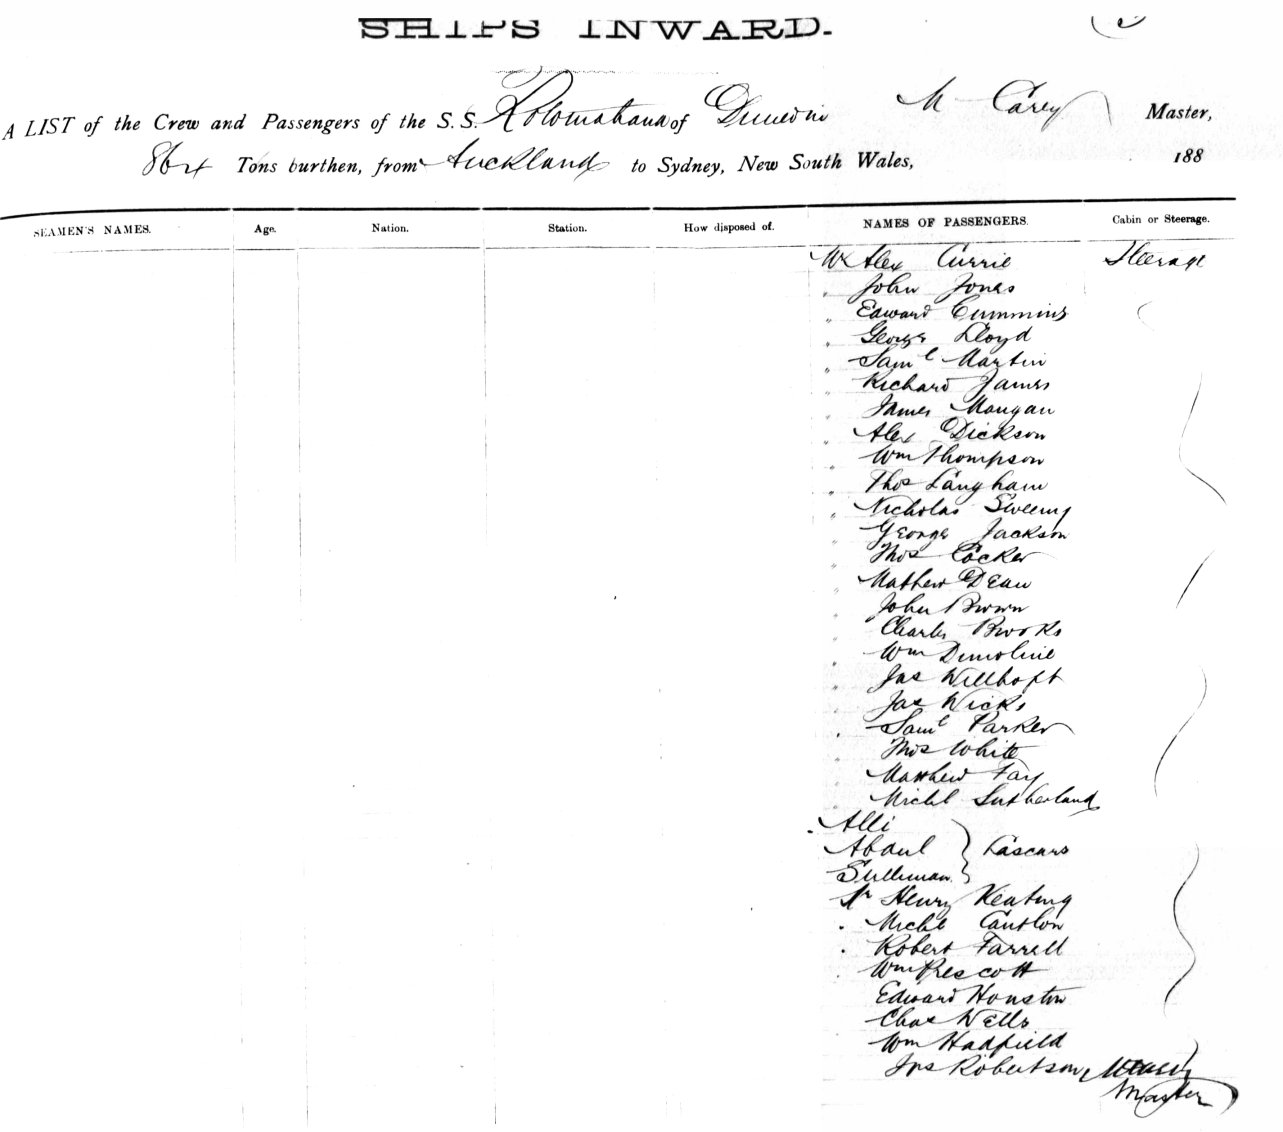 SHIPS INWARD.
A LIST of the Crew and Passengers of the S.S. Rotomahana of Dunedin M Carey Master,
864 Tons burthen, from Auckland to Sydney, New South Wales, 188
SEAMEN'S NAMES. Age. Nation. Station. How disposed of. NAMES OF PASSENGERS. Cabin or Steerage.
Mr Alex Currie Steerage
" John Jones
" Edward Cummins
" George Lloyd
" Saml Martin
" Richard James
" James Mangan
" Alex Dickson
" Wm Thompson
" Thos Langham
" Nicholas Sweeny
" George Jackson
" Thos Cocker
" Mathew Dean
" John Brown
" Charles Brooks
" Wm Dimoline
" Jas Willhoft
" Jas Wicks
" Saml Parker
" Thos White
" Matthew Fay
" Michl Sutherland
Alli
Abdul } Lascars
Sulliman
Mr Henry Keating
" Michl Cantlon
" Robert Farrell
" Wm Prescott
Edward Houston
Chas Wells
Wm Hadfield
Jas Robertson M Carey
Master